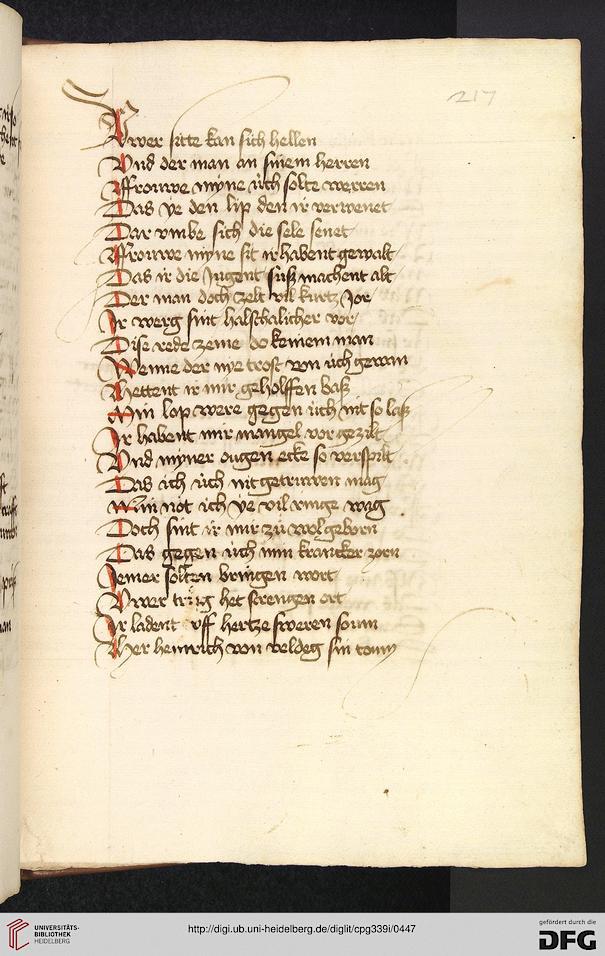 217
Vwer sitte kan sich hellen
Vnd der man an sinem herren
Ffrouwe myne uch solte werren
Das ye den lip den ir verwenet
Dar vmbe sich die sele senet
Ffrouwe myne sit ir habent gewalt
Das ir die Jugent suß machent alt
Der man doch zelt vil kurtz Jor
Ir werg sint halschalicher vor
Dise rede zeme do keinem man
Wenne der nye trost von uch gewan
Hettent ir mir geholffen baß
Min lop were gegen uch nit so laß
Ir habent mir mangel vor gezilt
Vnd myner ougen ecke so verspilt
Das ich uch nit getruwen mag
Min not uch ye vil ringe wag
Doch sint ir mir zu wol geborn
Das gegen uch min krancker zorn
Iemer solten bringen wort
Vwer het strengen ort
Ir ladent vff hertze sweren soum
Her heinrich von veldeg sin boum
UNIVERSITÄTS-
BIBLIOTHEK
HEIDELBERG
http://digi.ub.uni-heidelberg.de/diglit/cpg339i/0447
gefördert durch die
DFG